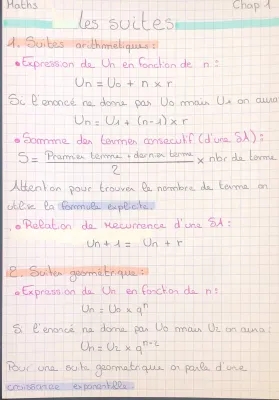 Maths
Chap 1
les suites
1. Suites arithmétiques :
• Expression de Un en fonction de n :
Un = U0 + n × r
Si l'énoncé ne donne pas U0 mais U1 on aura
Un = U1 + (n-1) × r
• Somme des termes consecutif (d'une SA) :
S = Premier terme + dernier terme / 2 × nbr de terme
Attention pour trouver le nombre de terme on
utilise la formule explicite.
• Relation de recurrence d'une SA :
Un+1 = Un + r
2. Suites geometrique :
• Expression de Un en fonction de n :
Un = U0 × q^n
Si l'énoncé ne donne pas U0 mais U2 on aura :
Un = U2 × q^n-2
Pour une suite geometrique on parle d'une
croissance exponentielle.